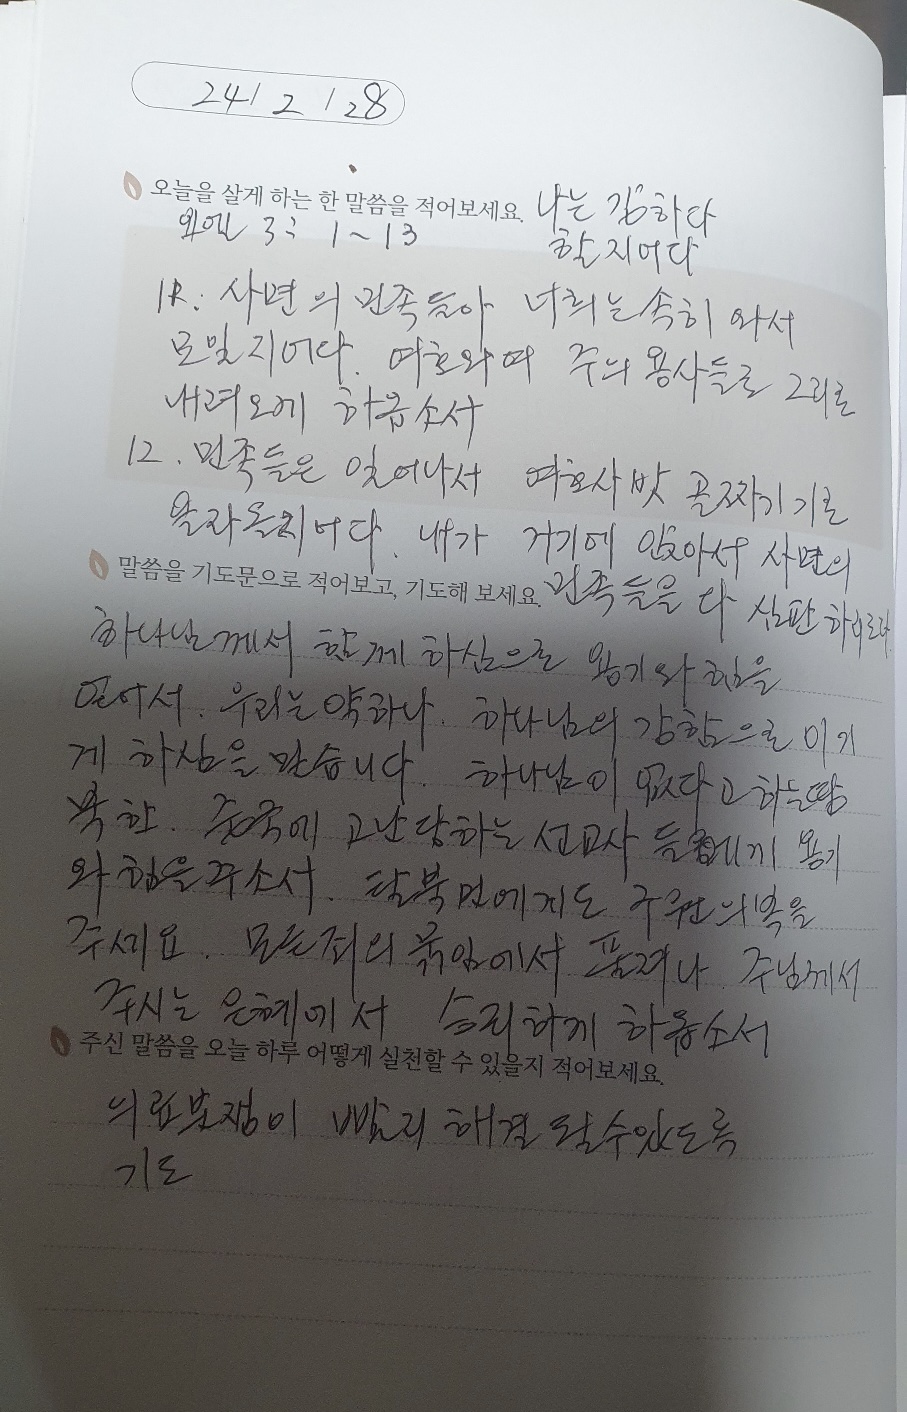 24 / 2 / 28
오늘을 살게 하는 한 말씀을 적어보세요. 나는 강하다
요엘 3 : 1 ~ 13 할지어다
11. 사면의 민족들아 너희는 속히 와서
모일지어다. 여호와여 주의 용사들로 그리로
내려오게 하옵소서
12. 민족들은 일어나서 여호사밧 골짜기로
올라올지어다. 내가 거기에 앉아서 사면의
민족들을 다 심판하리로다
말씀을 기도문으로 적어보고, 기도해 보세요.
하나님께서 함께 하심으로 용기와 힘을
얻어서. 우리는 약하나. 하나님의 강함으로 이기
게 하심을 믿습니다. 하나님이 없다고 하는 땅
북한. 중국에 고난당하는 선교사들에게 용기
와 힘을 주소서. 탈북민에게도 구원의 복을
주세요. 모든 죄의 묶임에서 풀려나 주님께서
주시는 은혜에서 승리하게 하옵소서
주신 말씀을 오늘 하루 어떻게 실천할 수 있을지 적어보세요.
의료분쟁이 빨리 해결 될수있도록
기도